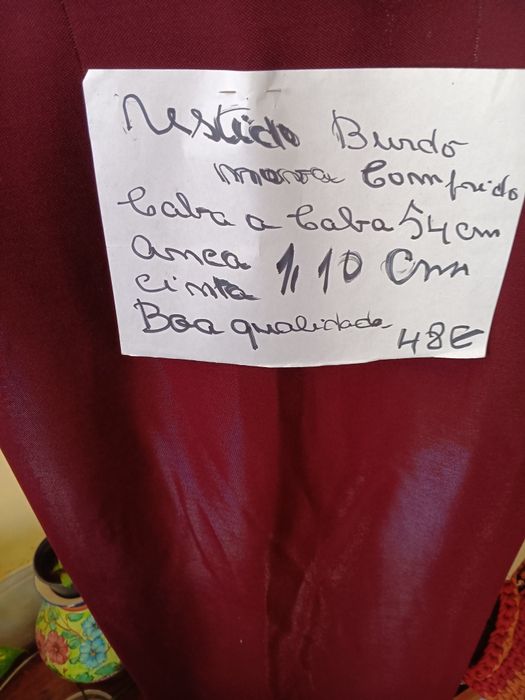 Vestido Burdo
manga Comfrido
Cava a Cava 54 cm
anca 1,10 Cm
cinta
Boa qualidade
48€